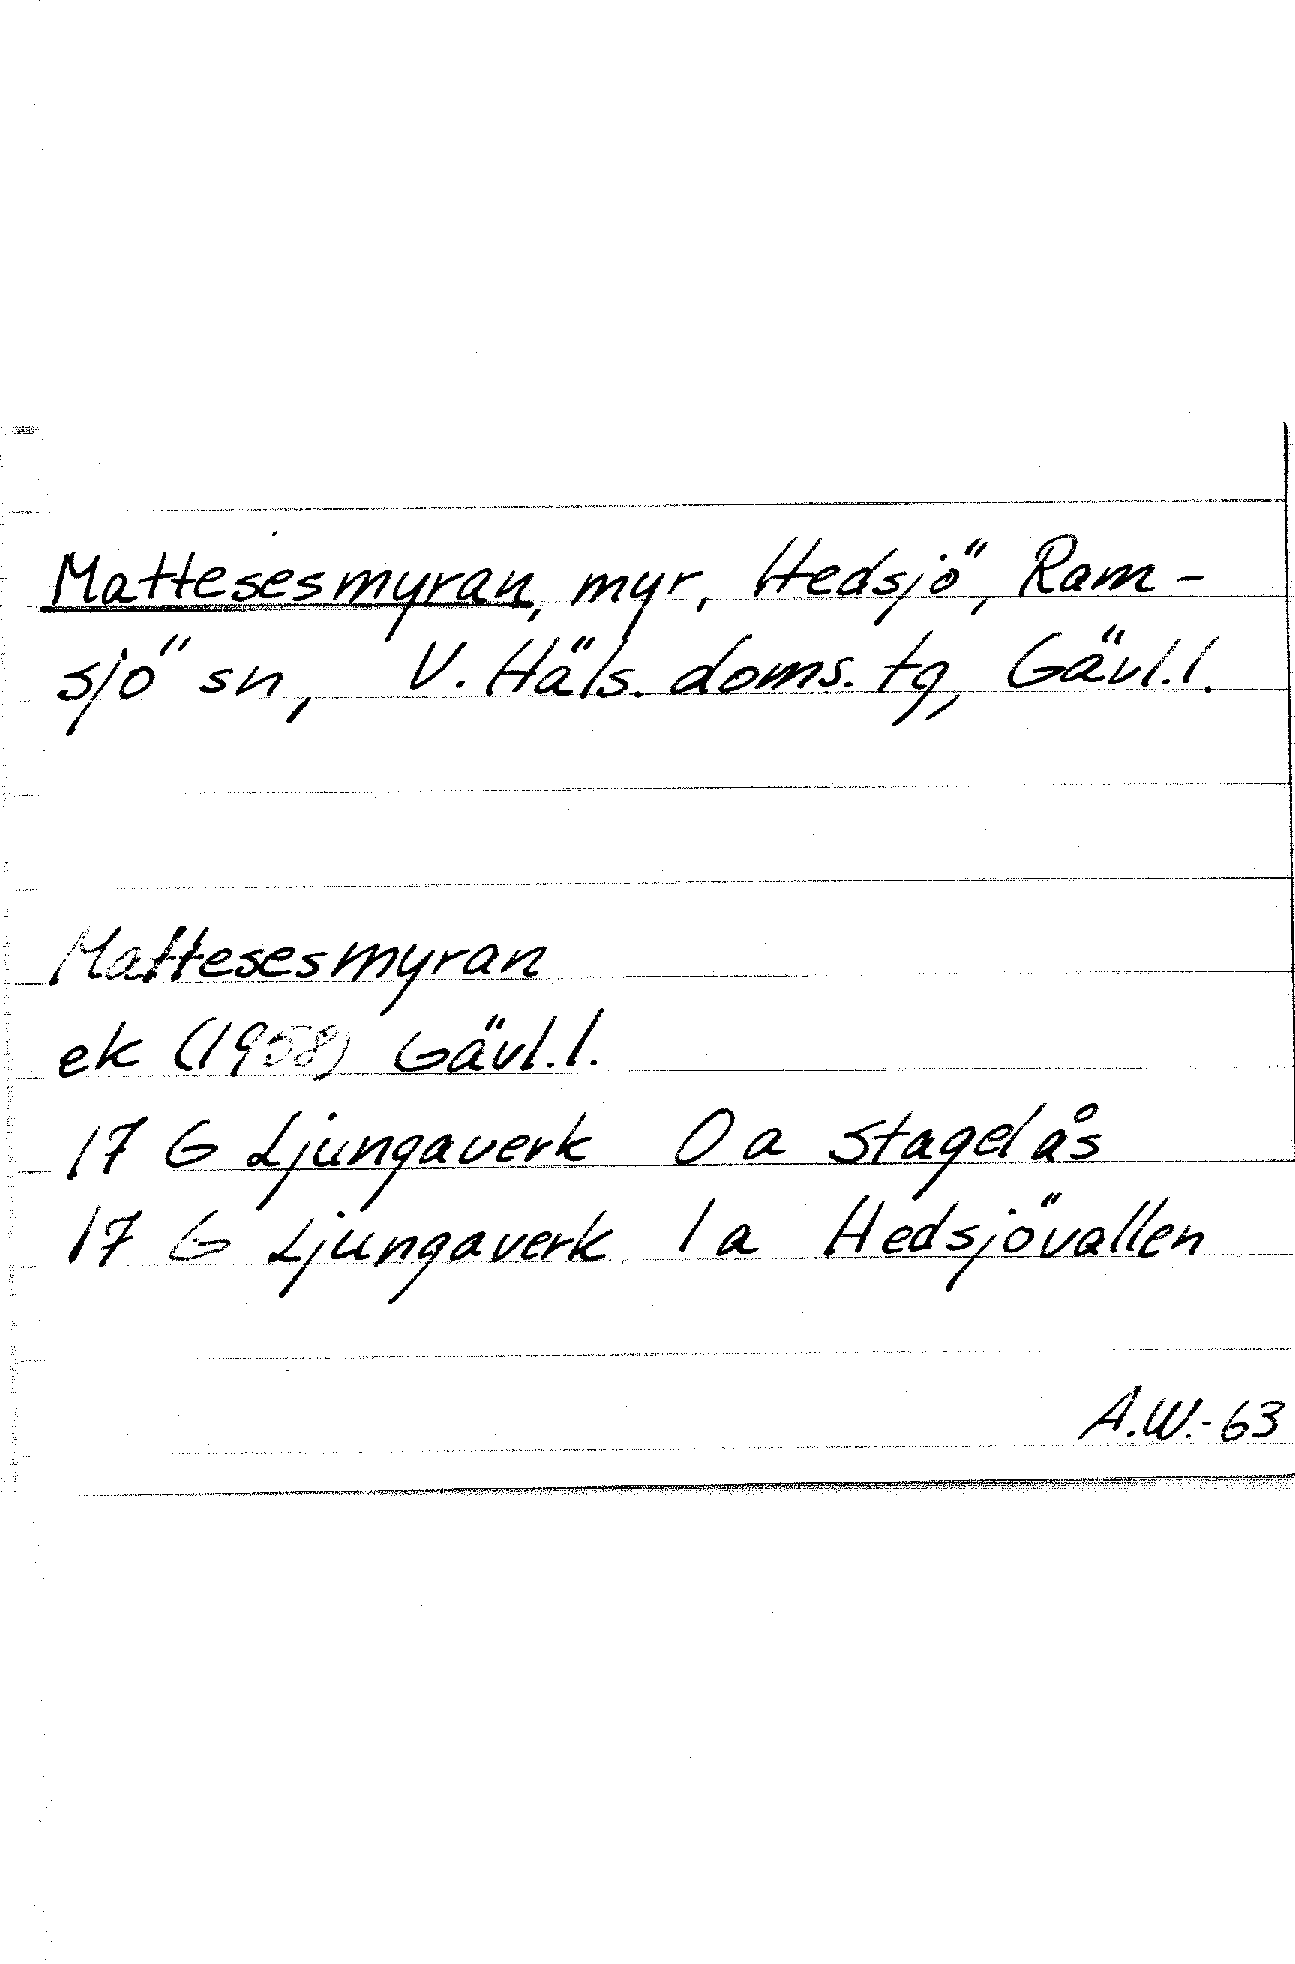 Mattesesmyran, myr, Hedsjö, Ram-
sjö sn, V. Häls. doms. tg, Gävl.l.
Mattesesmyran
ek (1958) Gävl.l.
17 G Ljungaverk 0 a Stagelås
17 G Ljungaverk 1 a Hedsjövallen
A.W.-63